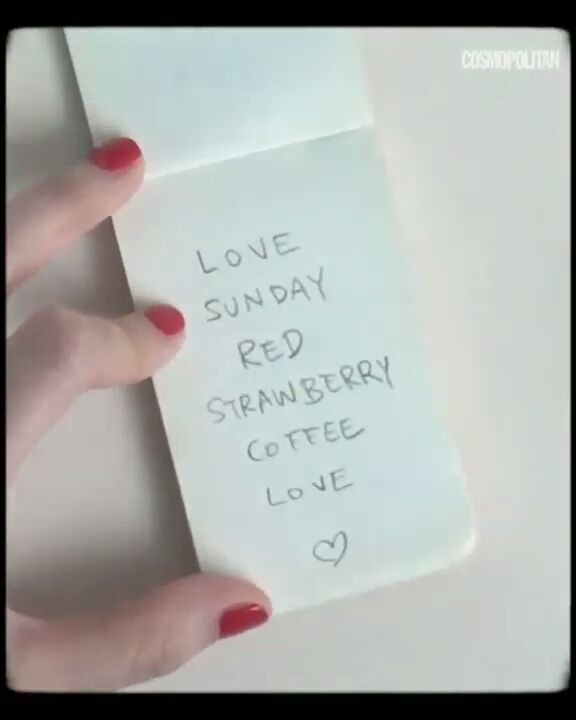 COSMOPOLITAN
LOVE
SUNDAY
RED
STRAWBERRY
COFFEE
LOVE